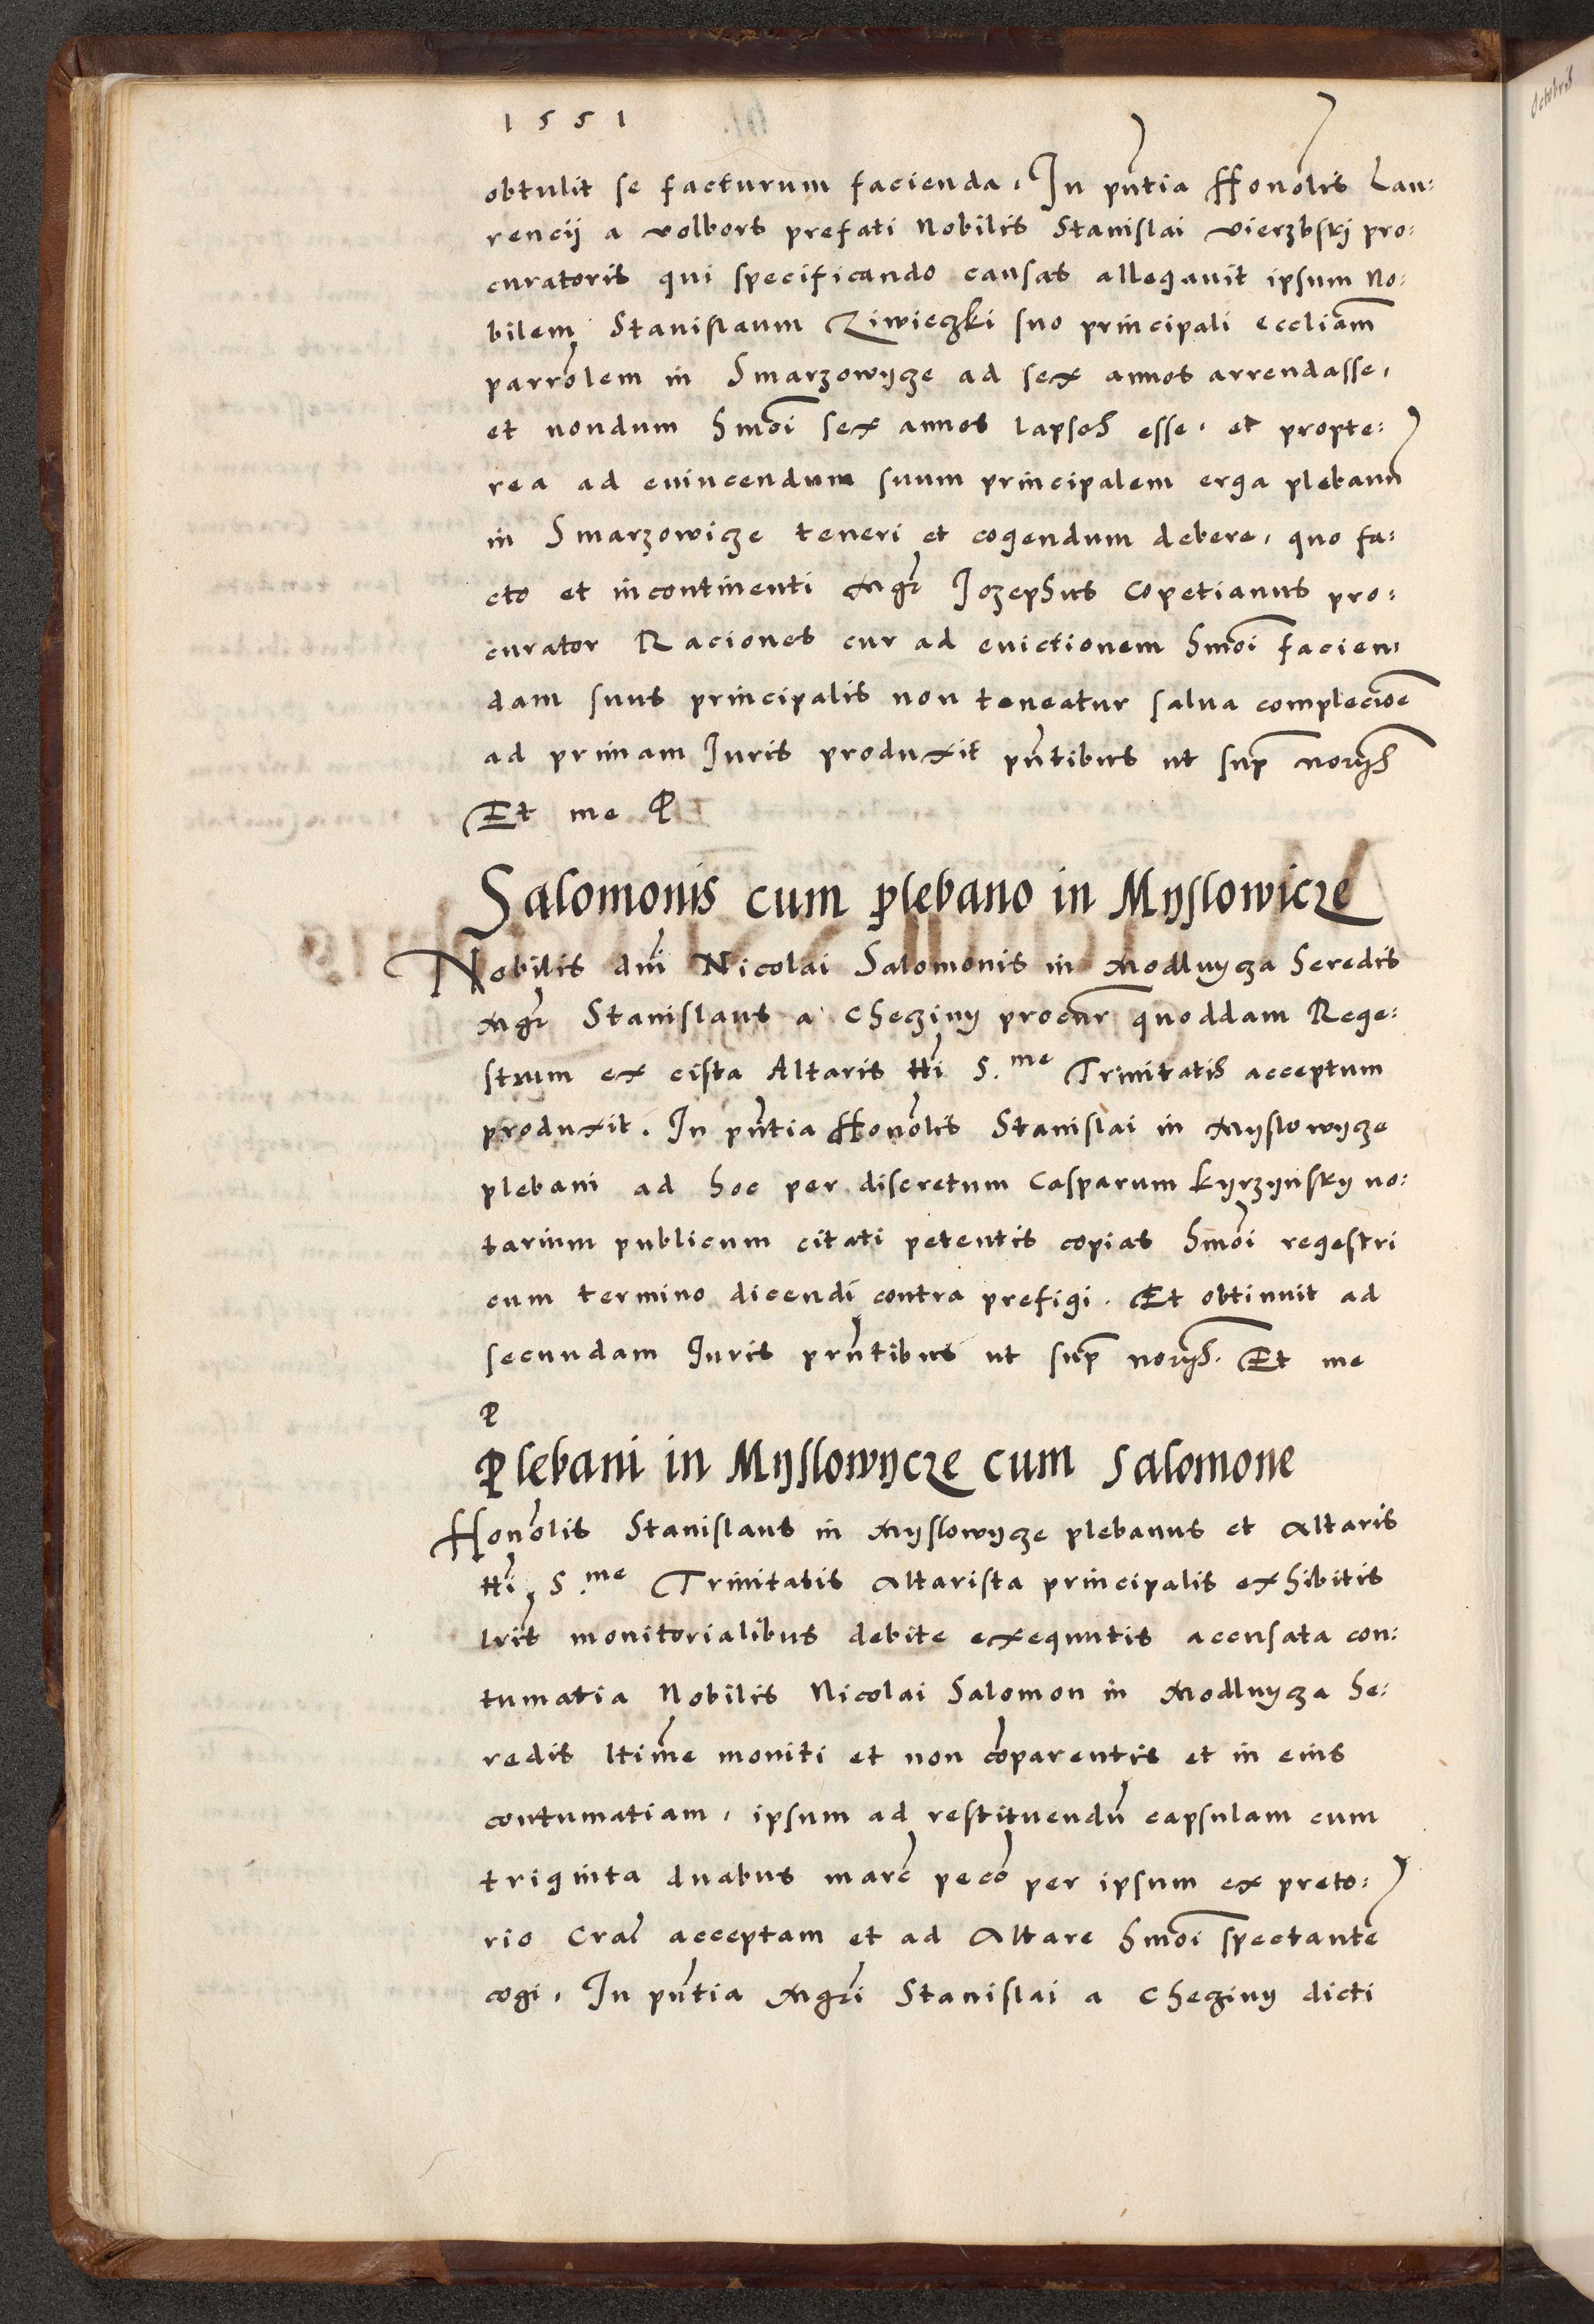 1551
obtulit se facturum facienda, In pñtia Honolis Lau:
rencij a volbors prefati Nobilis Stanislai vierzbskij pro:
curatoris qui specificando causas allegauit ipsum No:
bilem Stanislaum Ziwieczki suo principali eccliam
parrolem in Smarzowycze ad sex annos arrendasse,
et nondum hmoi sex annos lapsos esse, et propte:
rea ad euincendum suum principalem erga plebanu
in Smarzowicze teneri et cogendum debere, quo fa:
cto et incontinenti Mgr Jozephus Copetianus pro:
curator Raciones cur ad euictionem hmoi facien:
dam suus principalis non teneatur salua complecioe
ad primam Juris produxit pñtibus ut sup norijs
Et me P
Salomonis cum plebano in Myslowicze
Nobilis dni Nicolai Salomonis in Modlnycza heredis
Mgr Stanislaus a Checziny procur quoddam Rege:
strum ex cista Altaris tti S.me Trinitatis acceptum
produxit. In pñtia Honolis Stanislai in Myslowycze
plebani ad hoc per discretum Casparum kyrzynsky no:
tarium publicum citati petentis copias hmoi regestri
cum termino dicendi contra prefigi. Et obtinuit ad
secundam Juris prntibus ut sup norijs. Et me
P
Plebani in Myslowycze cum Salomone
Honolis Stanislaus in Myslowycze plebanus et Altaris
tti S.me Trinitatis Altarista principalis exhibitis
lris monitorialibus debite exequutis accusata con:
tumatia Nobilis Nicolai Salomon in Modlnycza he:
redis ltime moniti et non coparentis et in eius
contumatiam, ipsum ad restituendu capsulam cum
triginta duabus marc peco per ipsum ex preto:
rio Cra acceptam et ad Altare hmoi spectante
cogi, In pñtia Mgri Stanislai a Checziny dicti
Octobris